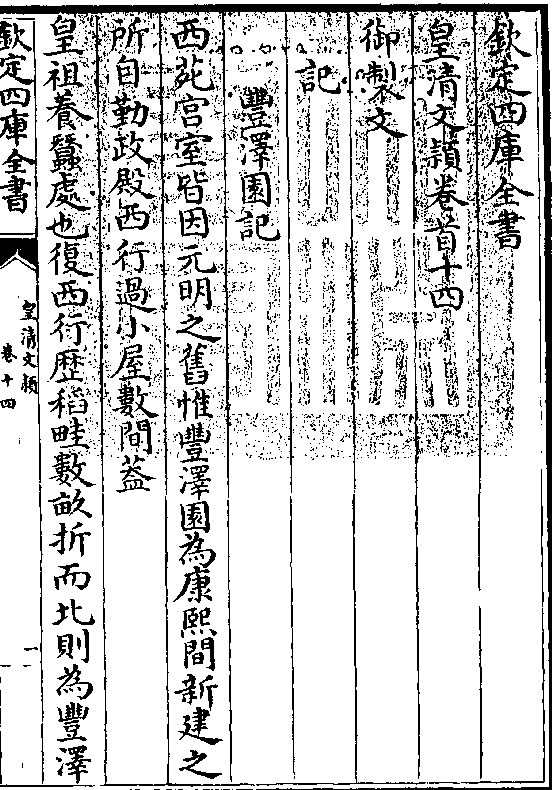 欽定四庫全書
皇清文穎卷首十四
御製文
記
豐澤園記
西苑宫室皆因元明之舊惟豐澤園為康熙間新建之
所自勤政殿西行過小屋數間葢
皇祖養蠶處也復西行歴稻畦數畝折而北則為豐澤
欽定四庫全書
皇清文穎
卷十四
一